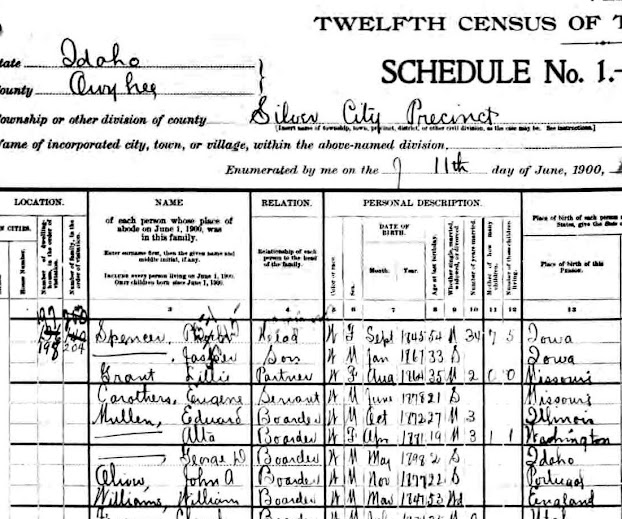 TWELFTH CENSUS OF T
State Idaho
County Owyhee
SCHEDULE No. 1.-
Township or other division of county Silver City Precinct
[Insert name of township, town, precinct, district, or other civil division, as the case may be. See instructions.]
Name of incorporated city, town, or village, within the above-named division,
Enumerated by me on the 11th day of June, 1900,
LOCATION. NAME RELATION. PERSONAL DESCRIPTION.
IN CITIES.
House Number.
Number of dwelling-house, in the order of visitation.
Number of family, in the order of visitation.
of each person whose place of abode on June 1, 1900, was in this family.
Enter surname first, then the given name and middle initial, if any.
Include every person living on June 1, 1900.
Omit children born since June 1, 1900.
Relationship of each person to the head of the family.
Color or race.
Sex.
DATE OF BIRTH.
Month. Year.
Age at last birthday.
Whether single, married, widowed, or divorced.
Number of years married.
Mother of how many children.
Number of these children living.
Place of birth of this Person.
3 4 5 6 7 8 9 10 11 12 13
Spencer, Head W F Sept 1845 54 M 34 7 5 Iowa
198 204 ———, Jasper Son W M Jan 1867 33 S Iowa
Grant Lillie Partner W F Aug 1864 35 M 2 0 0 Missouri
Carothers, Eugene Servant W M June 1878 21 S Missouri
Mullen, Edward Boarder W M Oct 1872 27 M 3 Illinois
——— Alta Boarder W F Apr 1881 19 M 3 1 1 Washington
———, George D Boarder W M May 1898 2 S Idaho
John A Boarder W M Nov 1877 22 S Portugal
Williams, William Boarder W M Mar 1847 53 Wd England